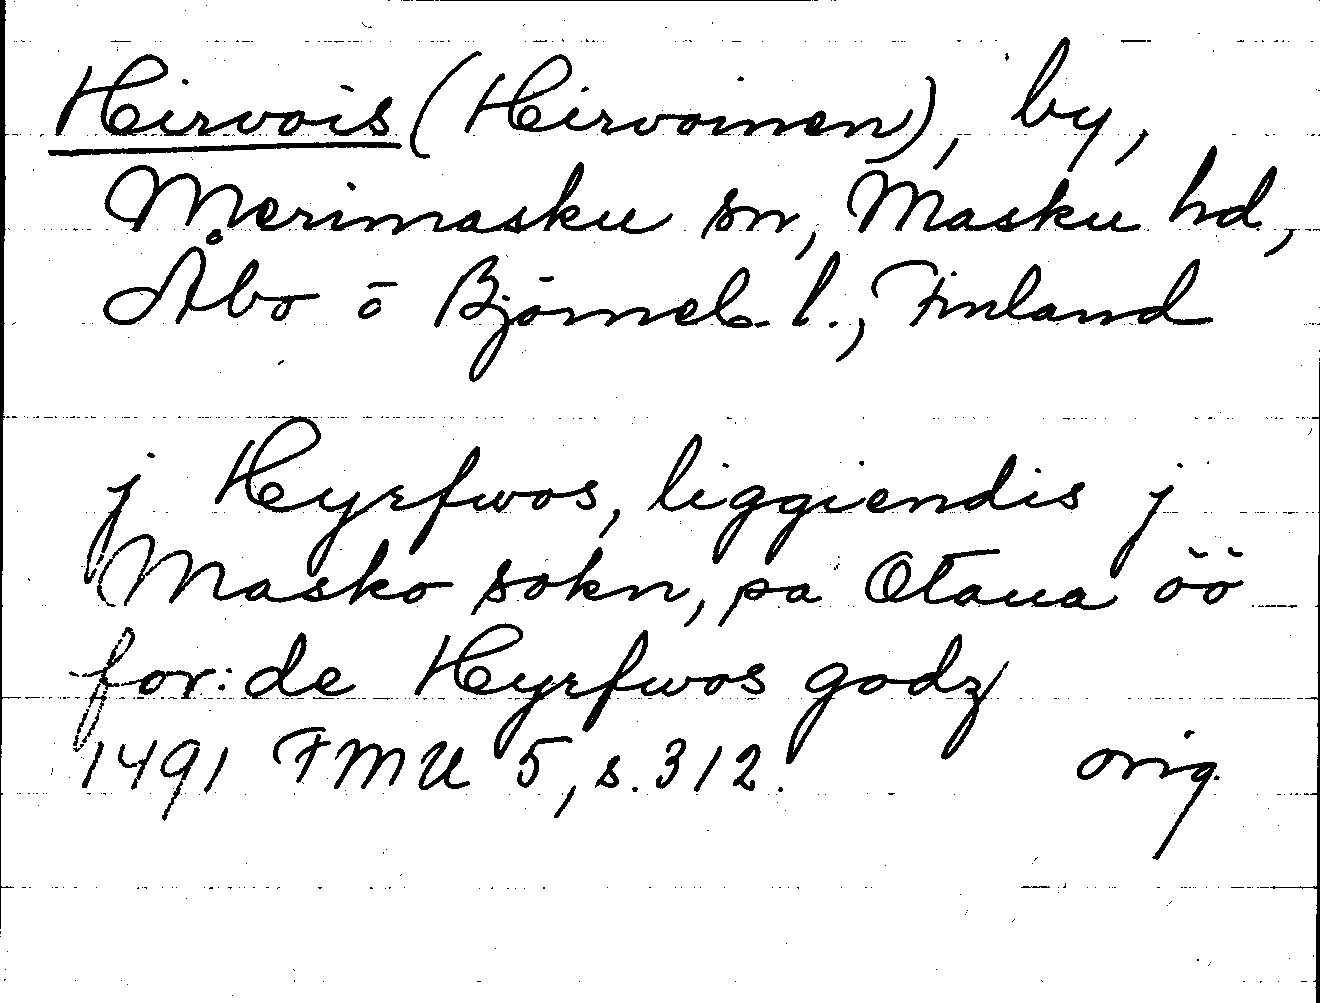 Hirvois (Hirvoinen), by,
Merimasku sn, Masku hd,
Åbo o Björneb. l., Finland
j Hyrfwos, liggiendis j
Masko sokn, pa Otaua öö
for: de Hyrfwos godz
1491 FMU 5, s. 312. orig.